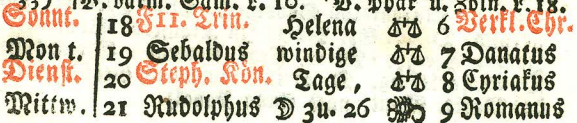 Sonnt. 18 F 11. Trin. Helena 6 Verkl. Chr.
Mont. 19 Sebaldus windige 7 Danatus
Dienst. 20 Steph. Kön. Tage, 8 Cyriakus
Mittw. 21 Rudolphus zu. 26 9 Romanus